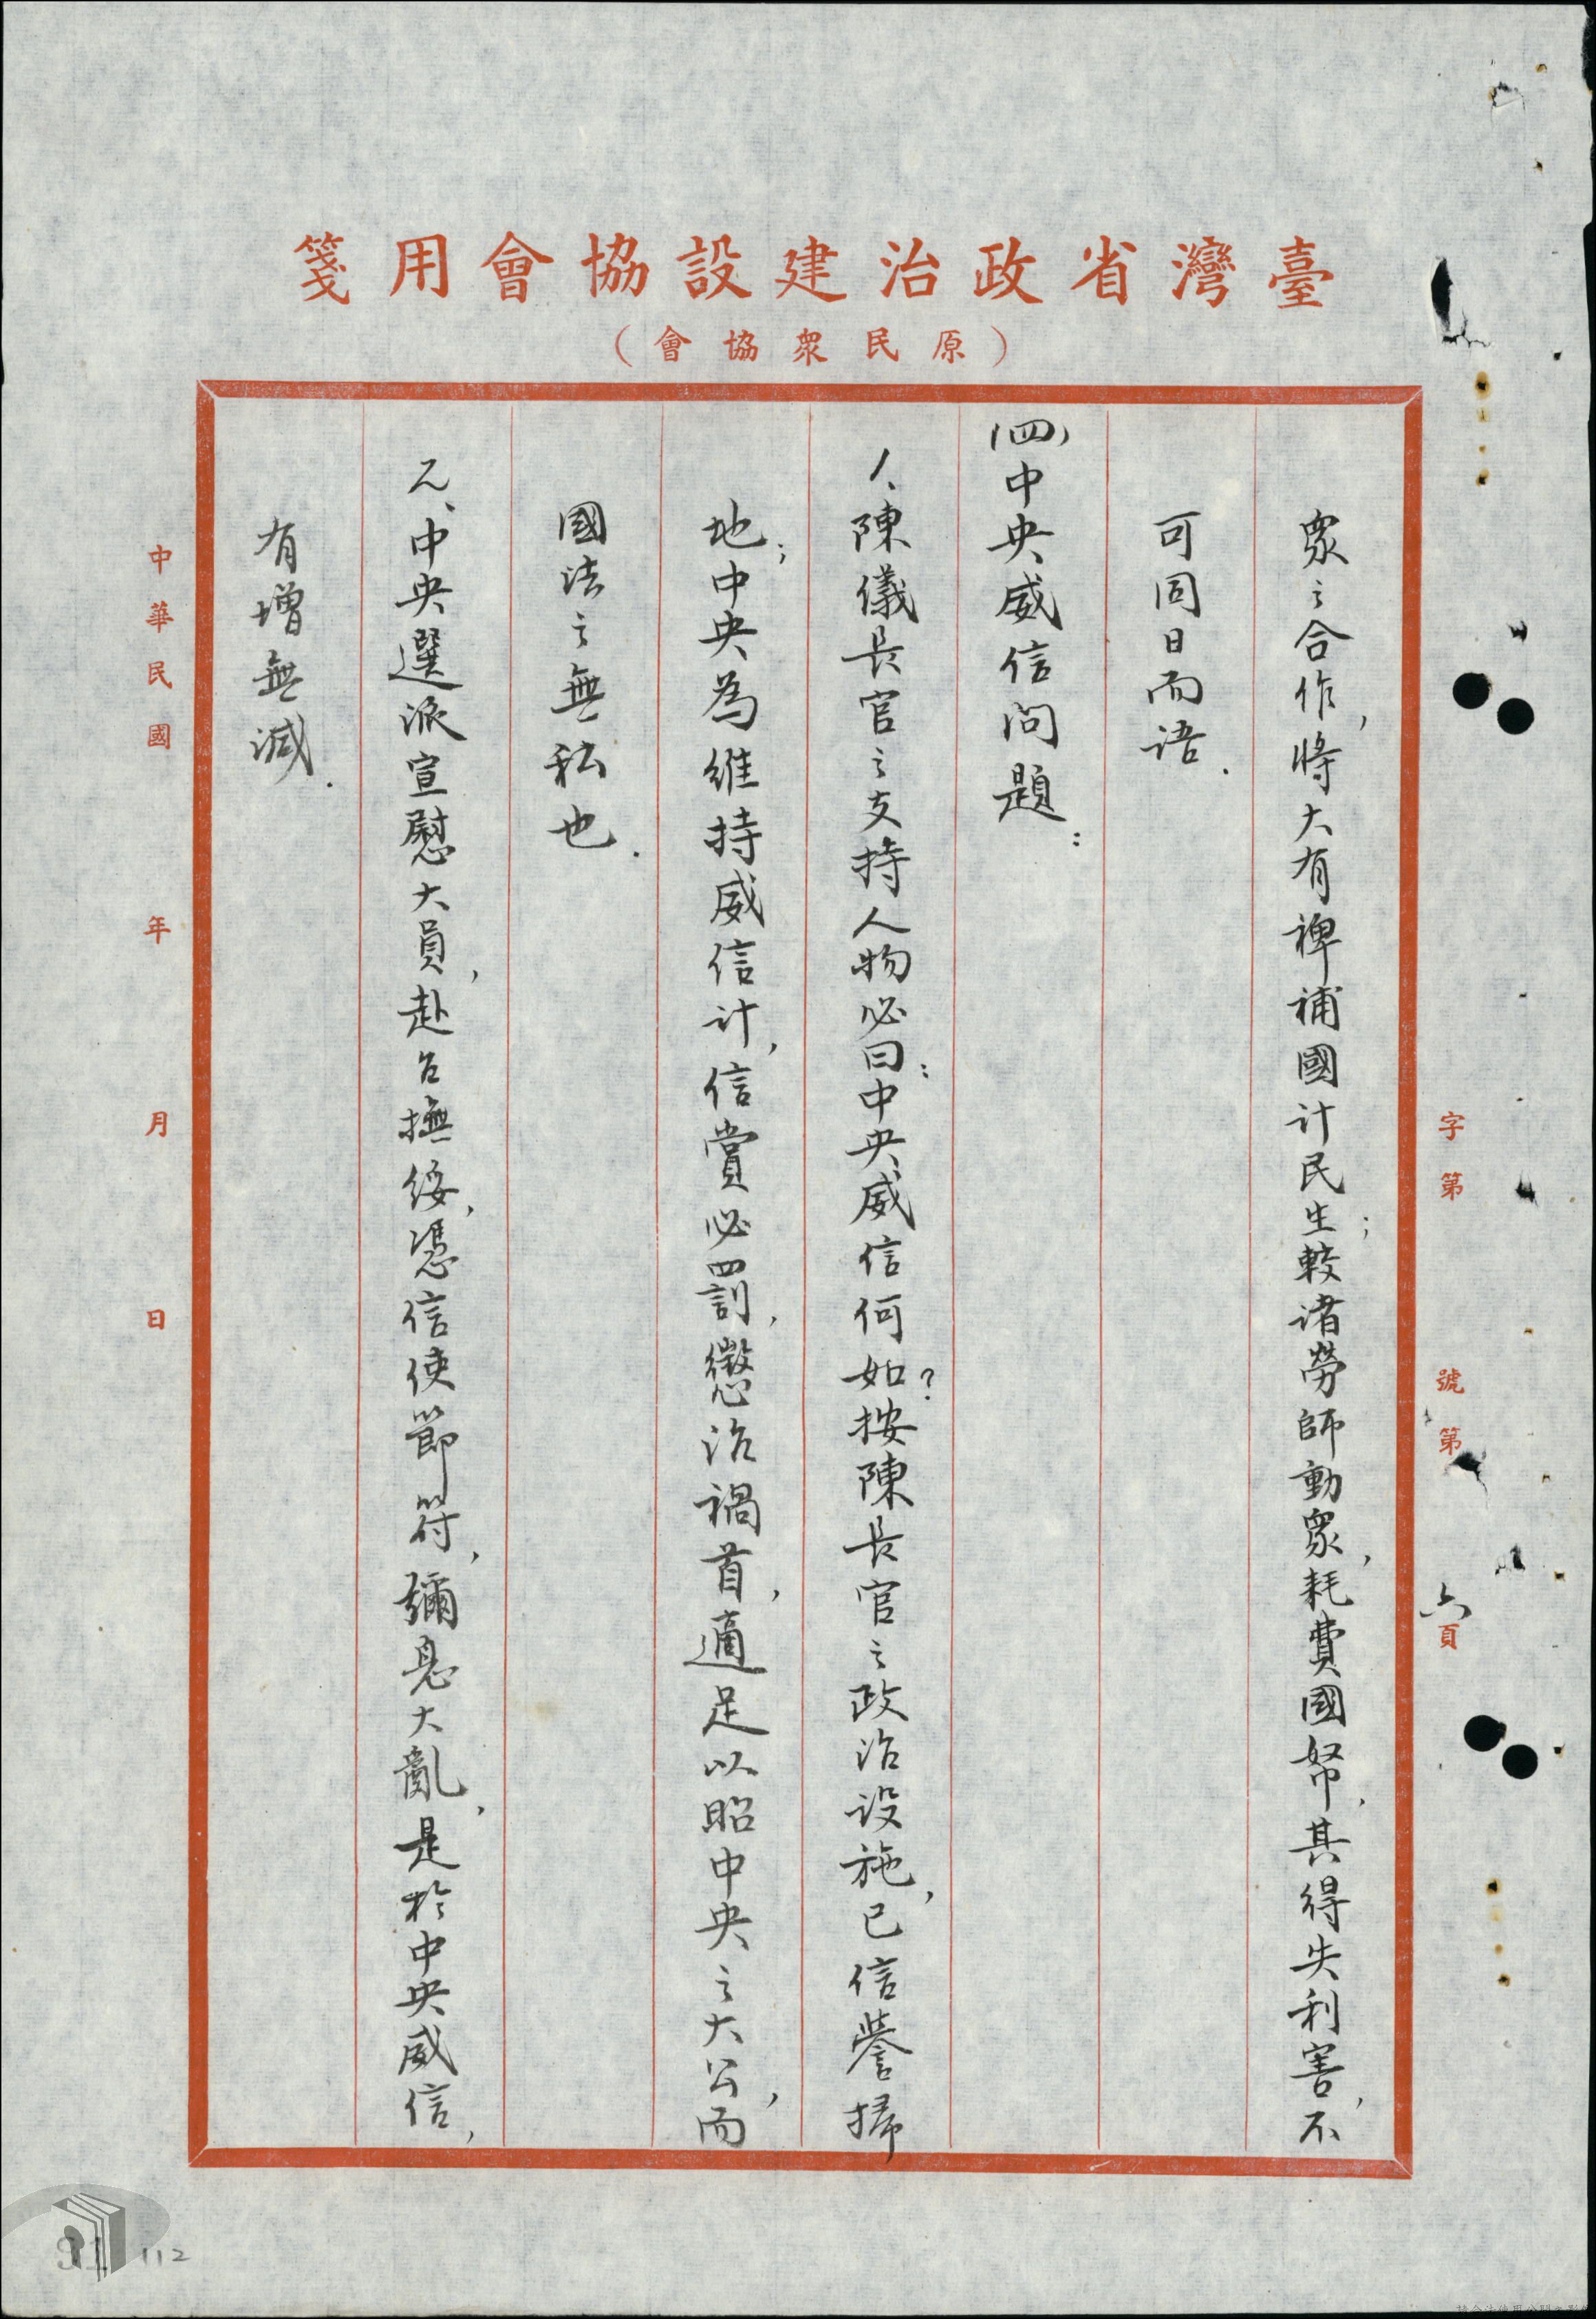 臺灣省政治建設協會用箋
（原民眾協會）
字第　號第六頁
眾之合作，將大有裨補國计民生；較诸勞師動眾，耗費國帑，其得失利害，不
可同日而语．
(四)中央威信问題：
1、陳儀長官之支持人物必曰：中央威信何如？按陳長官之政治设施，已信譽掃
地；中央為維持威信计，信賞必罰，懲治禍首，適足以昭中央之大公，而
國法之無私也．
2、中央選派宣慰大員，赴台撫绥，憑信使節符，彌息大亂，是於中央威信，
有增無減．
中華民國　年　月　日
112